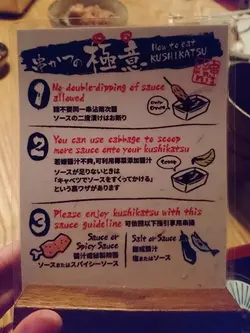 串かつの極意
How to eat
KUSHIKATSU
1
No double-dipping of sauce
allowed
ソースの二度漬けはお断り
Only
Once!
2
You can use cabbage to scoop
more sauce onto your kushikatsu
若蘸醬汁不夠,可利用椰菜添醬汁
ソースが足りないときは
「キャベツでソースをすくってかける」
という裏ワザがあります
Scoop
3
Please enjoy kushikatsu with this
sauce guideline
可依照以下指引享用串揚
Sauce or
Spicy Sauce
醬汁或秘製辣醬
ソースまたはスパイシーソース
Salt or Sauce
鹽或醬汁
塩またはソース